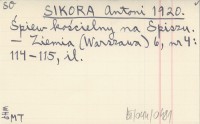 50
SIKORA Antoni 1920.
Śpiew kościelny na Spiszu.
— Ziemia (Warszawa) 6, nr 4:
114-115, il.
MT